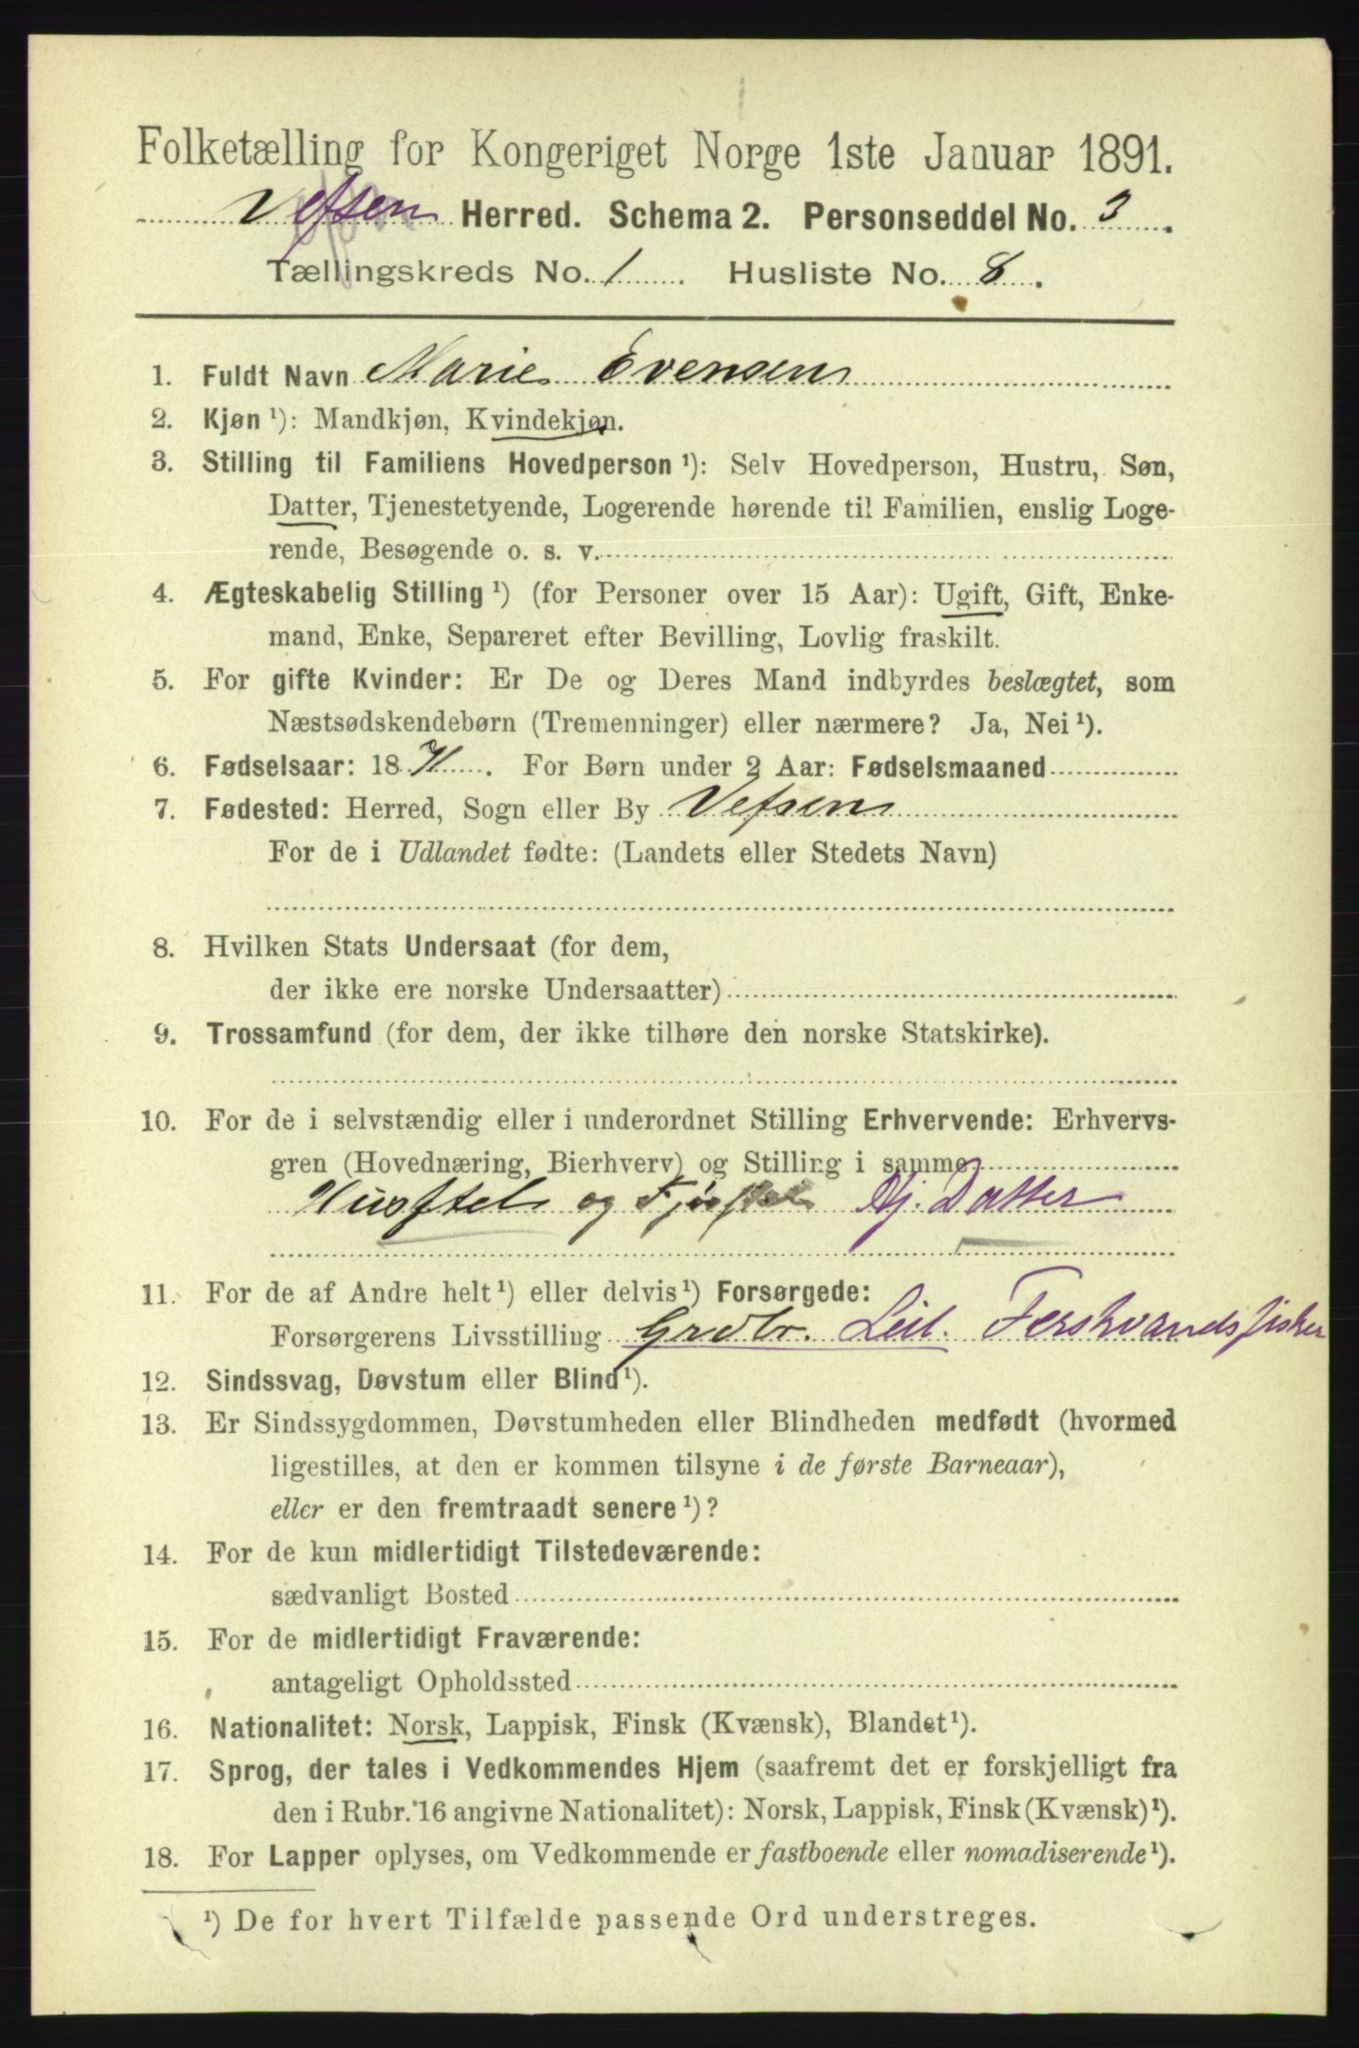 Folketælling for Kongeriget Norge 1ste Januar 1891.
Vefsen Herred. Schema 2. Personseddel No. 3.
Tællingskreds No. 1. Husliste No. 8.
1. Fuldt Navn Marie Evensen
2. Kjøn ¹): Mandkjøn, Kvindekjøn.
3. Stilling til Familiens Hovedperson ¹): Selv Hovedperson, Hustru, Søn,
Datter, Tjenestetyende, Logerende hørende til Familien, enslig Loge-
rende, Besøgende o. s. v.
4. Ægteskabelig Stilling ¹) (for Personer over 15 Aar): Ugift, Gift, Enke-
mand, Enke, Separeret efter Bevilling, Lovlig fraskilt.
5. For gifte Kvinder: Er De og Deres Mand indbyrdes beslægtet, som
Næstsødskendebørn (Tremenninger) eller nærmere? Ja, Nei ¹).
6. Fødselsaar: 1871. For Børn under 2 Aar: Fødselsmaaned
7. Fødested: Herred, Sogn eller By Vefsen
For de i Udlandet fødte: (Landets eller Stedets Navn)
8. Hvilken Stats Undersaat (for dem,
der ikke ere norske Undersaatter)
9. Trossamfund (for dem, der ikke tilhøre den norske Statskirke).
10. For de i selvstændig eller i underordnet Stilling Erhvervende: Erhvervs-
gren (Hovednæring, Bierhverv) og Stilling i samme
Husstel og Fjøsstel Hj. Datter
11. For de af Andre helt ¹) eller delvis ¹) Forsørgede:
Forsørgerens Livsstilling Grdbr. Leil. Ferskvandsfisker
12. Sindssvag, Døvstum eller Blind ¹).
13. Er Sindssygdommen, Døvstumheden eller Blindheden medfødt (hvormed
ligestilles, at den er kommen tilsyne i de første Barneaar),
eller er den fremtraadt senere ¹)?
14. For de kun midlertidigt Tilstedeværende:
sædvanligt Bosted
15. For de midlertidigt Fraværende:
antageligt Opholdssted
16. Nationalitet: Norsk, Lappisk, Finsk (Kvænsk), Blandet ¹).
17. Sprog, der tales i Vedkommendes Hjem (saafremt det er forskjelligt fra
den i Rubr. 16 angivne Nationalitet): Norsk, Lappisk, Finsk (Kvænsk) ¹).
18. For Lapper oplyses, om Vedkommende er fastboende eller nomadiserende ¹).
¹) De for hvert Tilfælde passende Ord understreges.